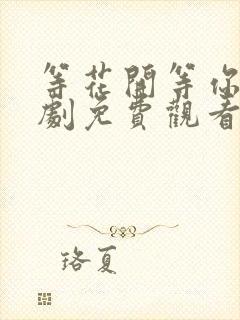 等花開等你
劇免費觀看
珞夏